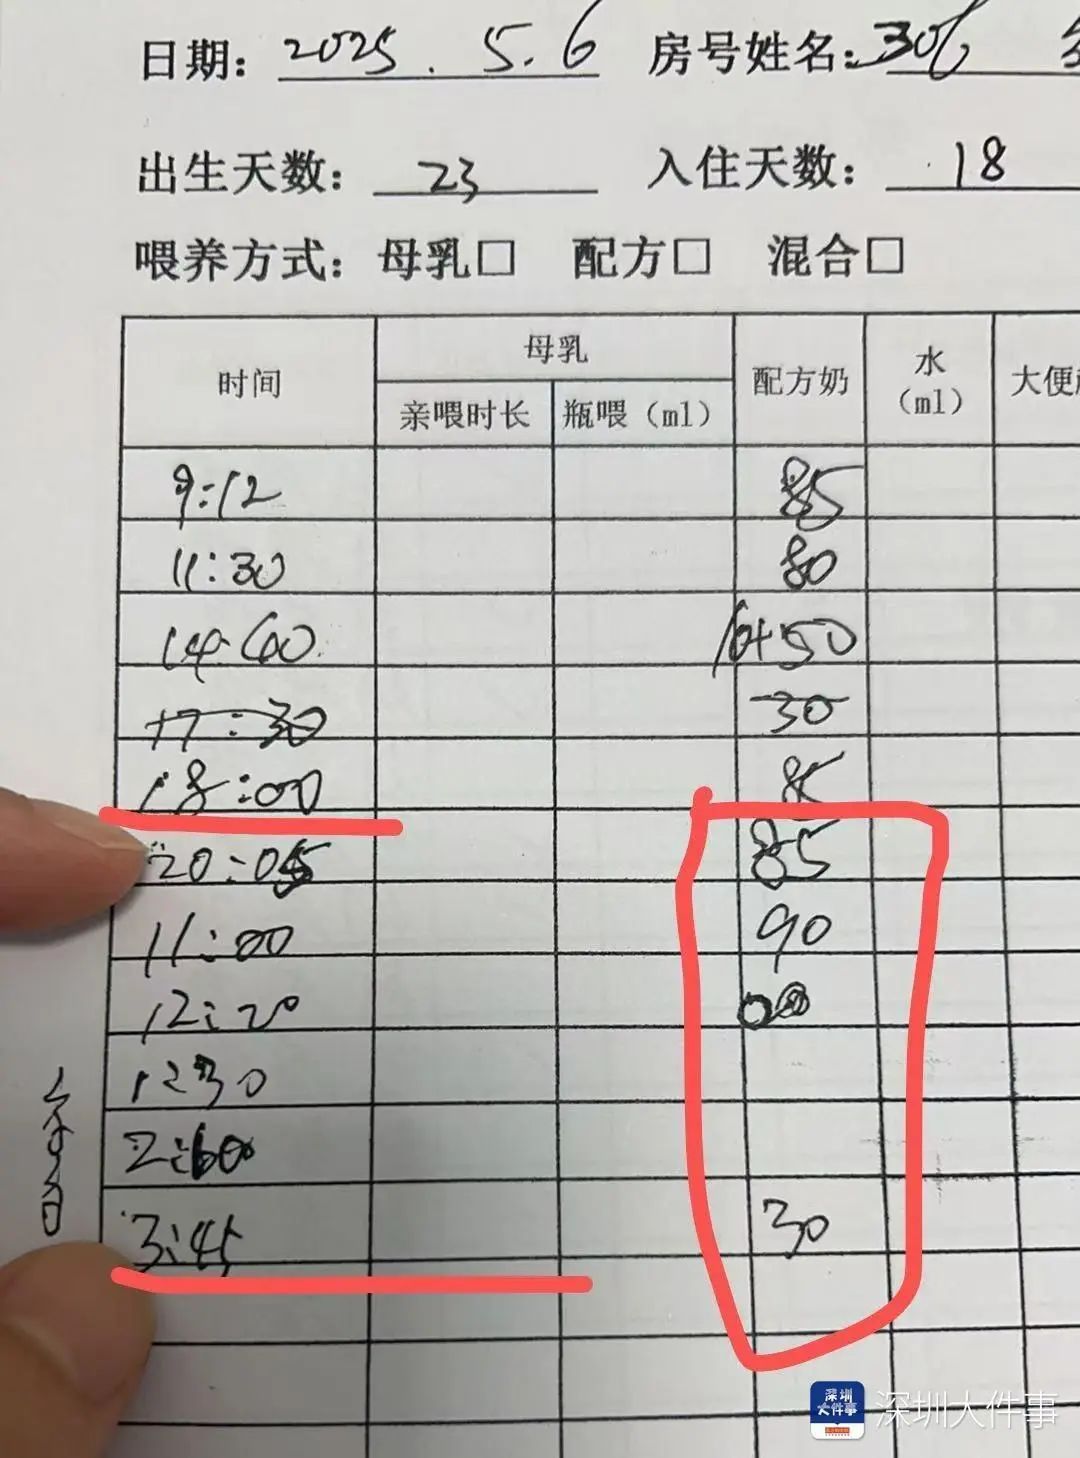 日期: 2025. 5.6 房号姓名: 306
出生天数: 23 入住天数: 18
喂养方式: 母乳□ 配方□ 混合□
时间 母乳 配方奶 水(ml) 大便
亲喂时长 瓶喂(ml)
9:12 85
11:30 80
+50
17:30 30
18:00
20:05 85
11:00 90
12:20
12:30
3:45 30
深圳大件事
深圳大件事